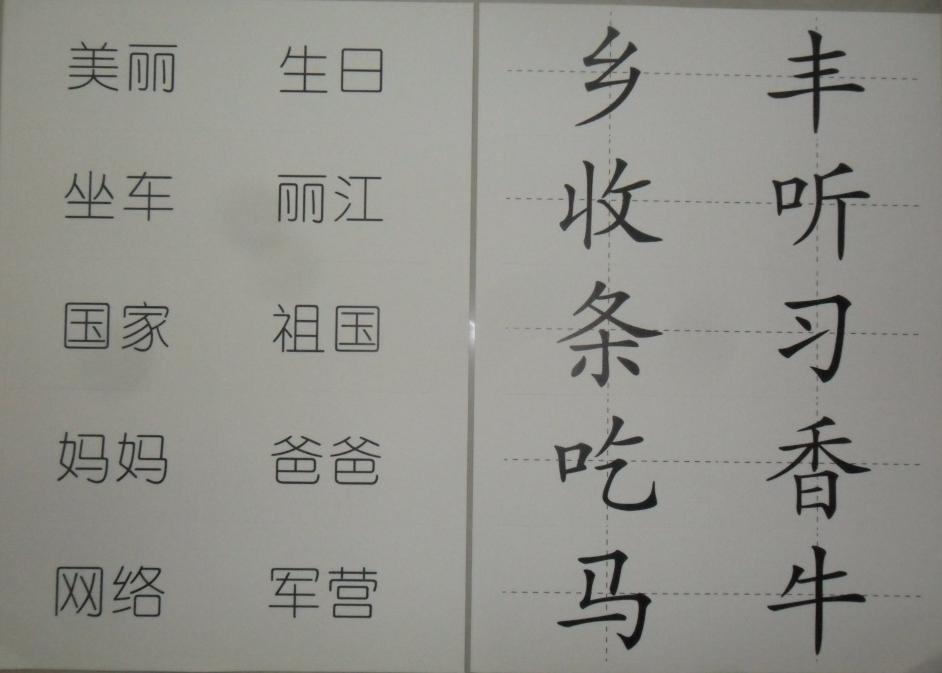 美丽 生日
坐车 丽江
国家 祖国
妈妈 爸爸
网络 军营
乡 丰
收 听
条 习
吃 香
马 牛